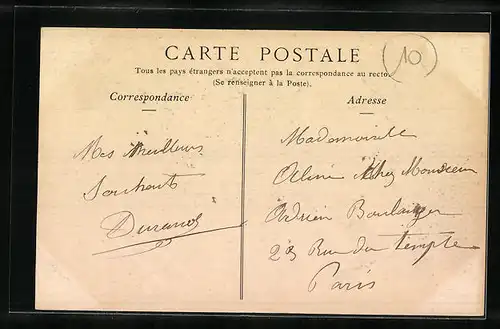 CARTE POSTALE
10
Tous les pays étrangers n'acceptent pas la correspondance au recto.
(Se renseigner à la Poste).
Correspondance
Mes Meilleurs
Souhaits
Durand
Adresse
Mademoiselle
Aline Chez Monsieur
Adrien Boulanger
23 Rue du Temple
Paris